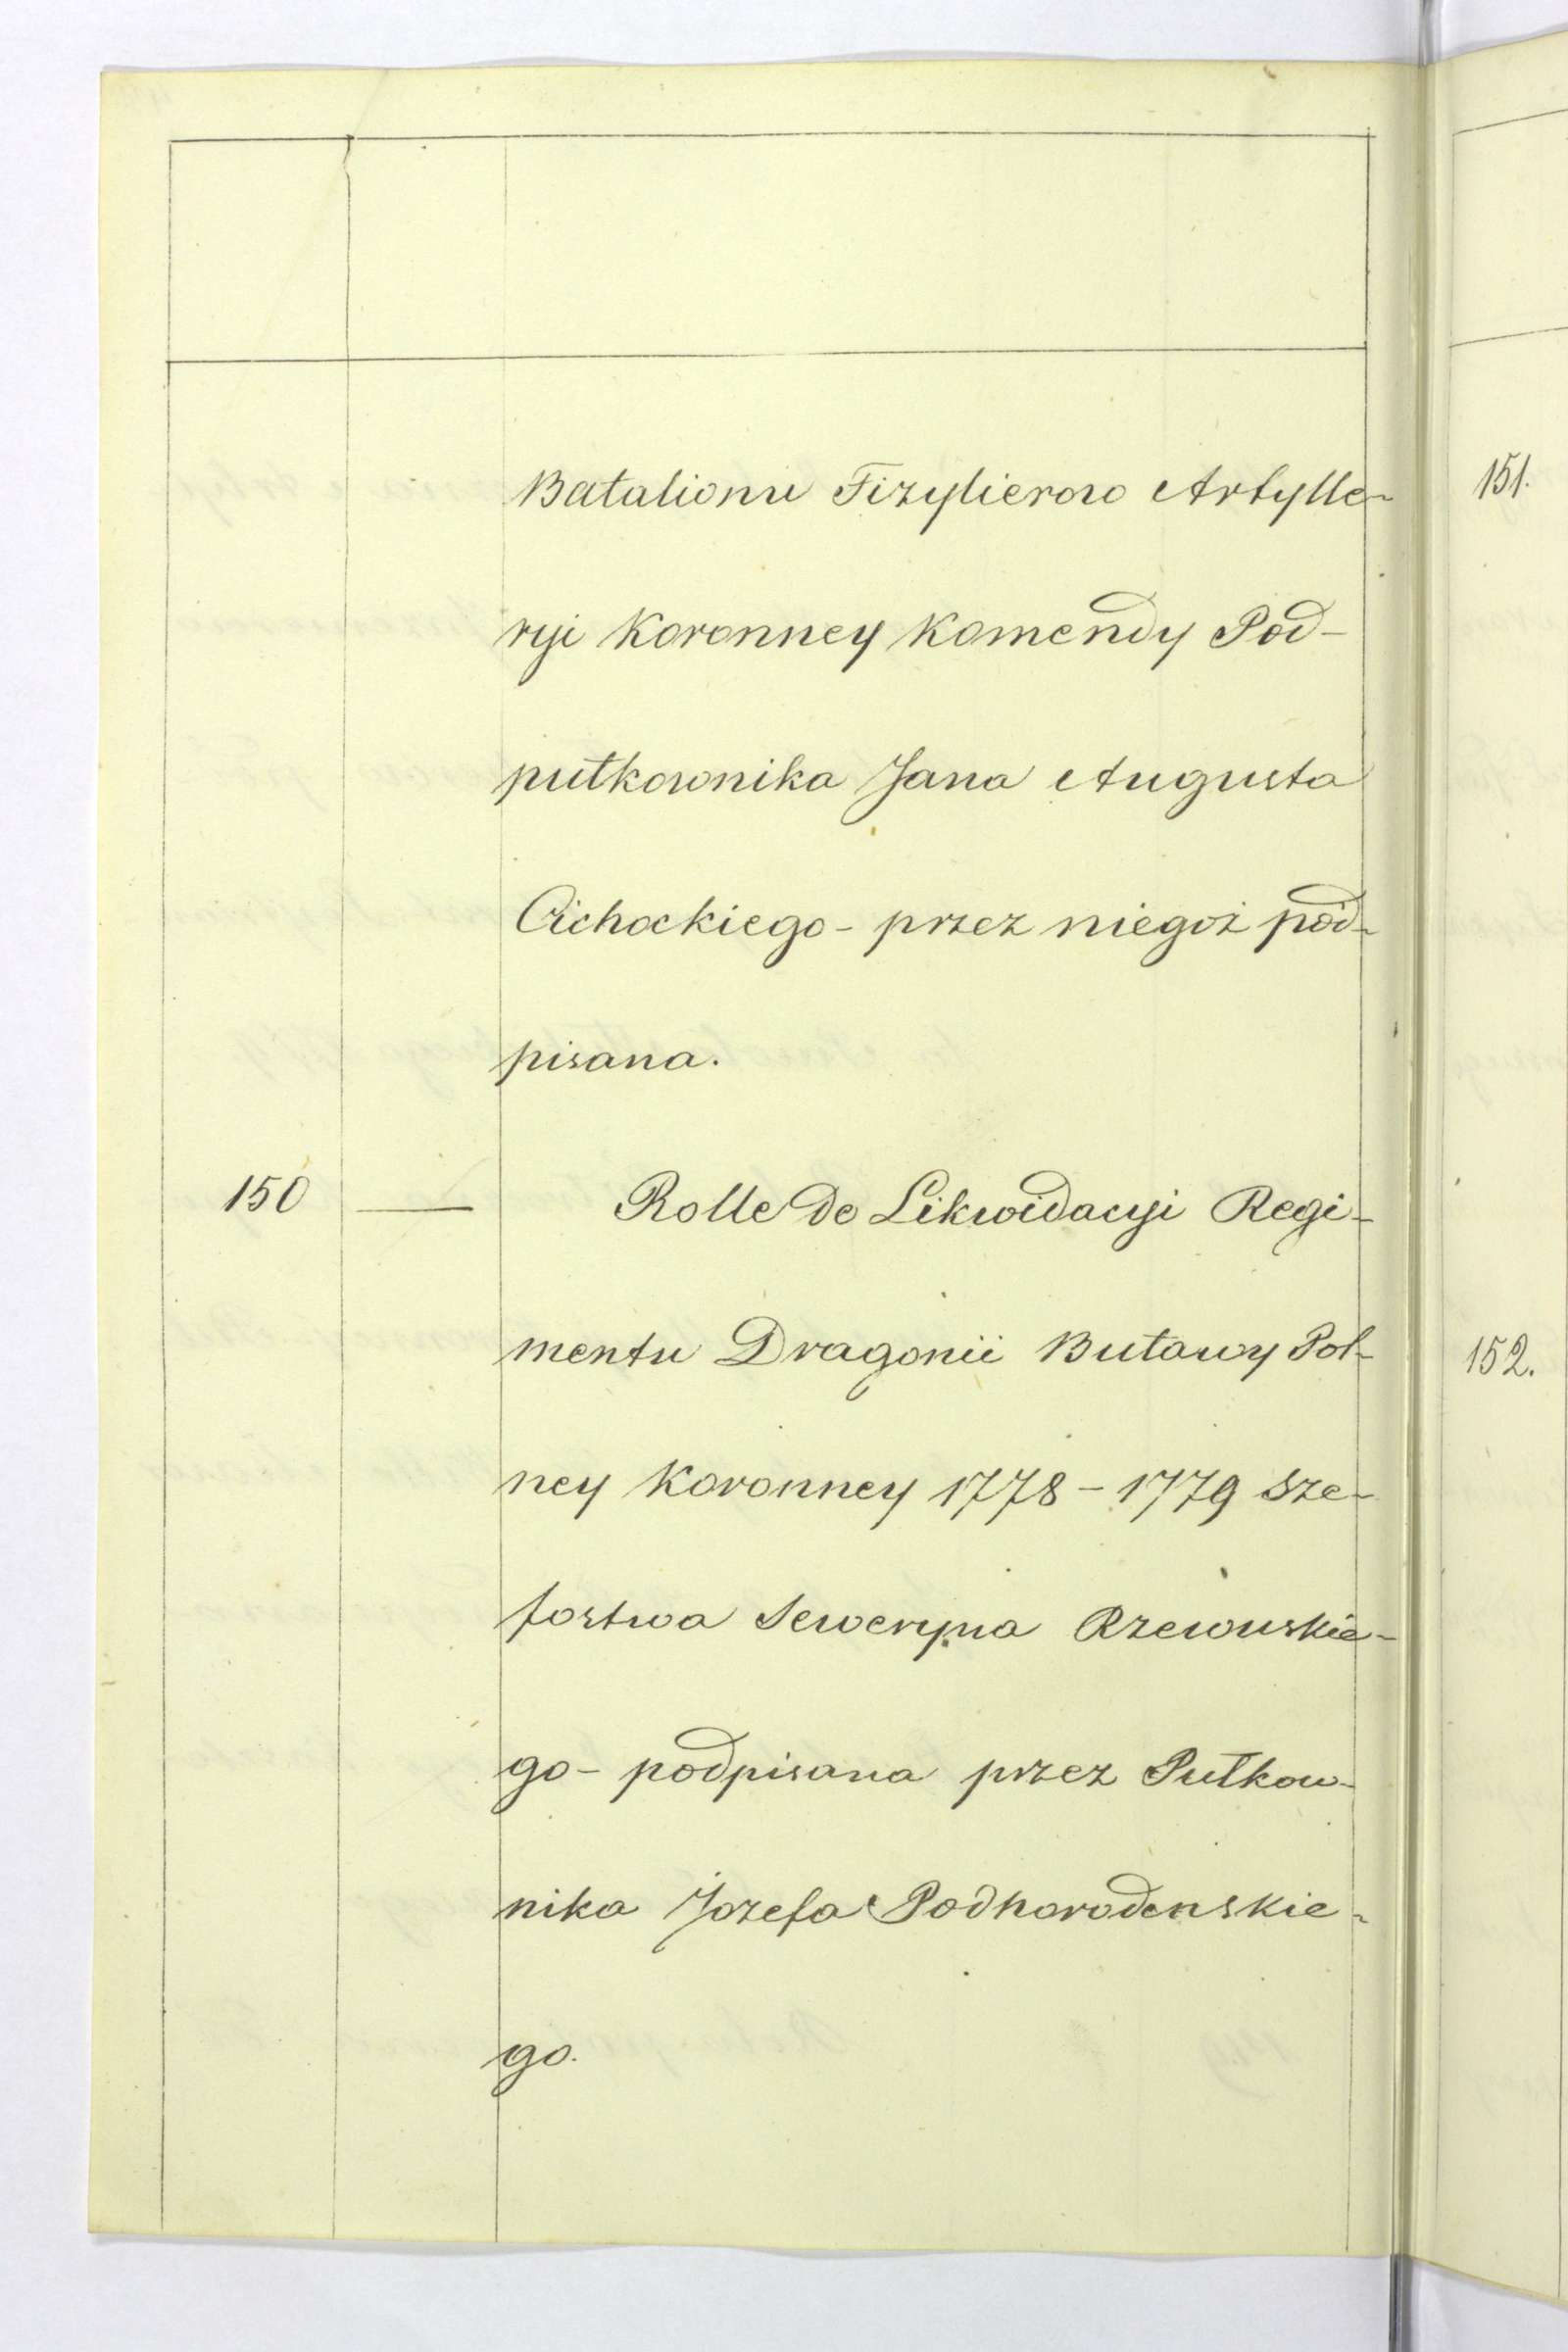 Batalionu Fizylierow Artylle-
ryi Koronney Komendy Pod-
pułkownika Jana Augusta
Cichockiego - przez niegoż pod-
pisana.
150 — Rolle do Likwidacyi Regi-
mentu Dragonii Buławy Pol-
ney Koronney 1778 - 1779 Sze-
fostwa Seweryna Rzewuskie-
go - podpisana przez Pułkow-
nika Jozefa Podhorodenskie-
go.
151.
152.